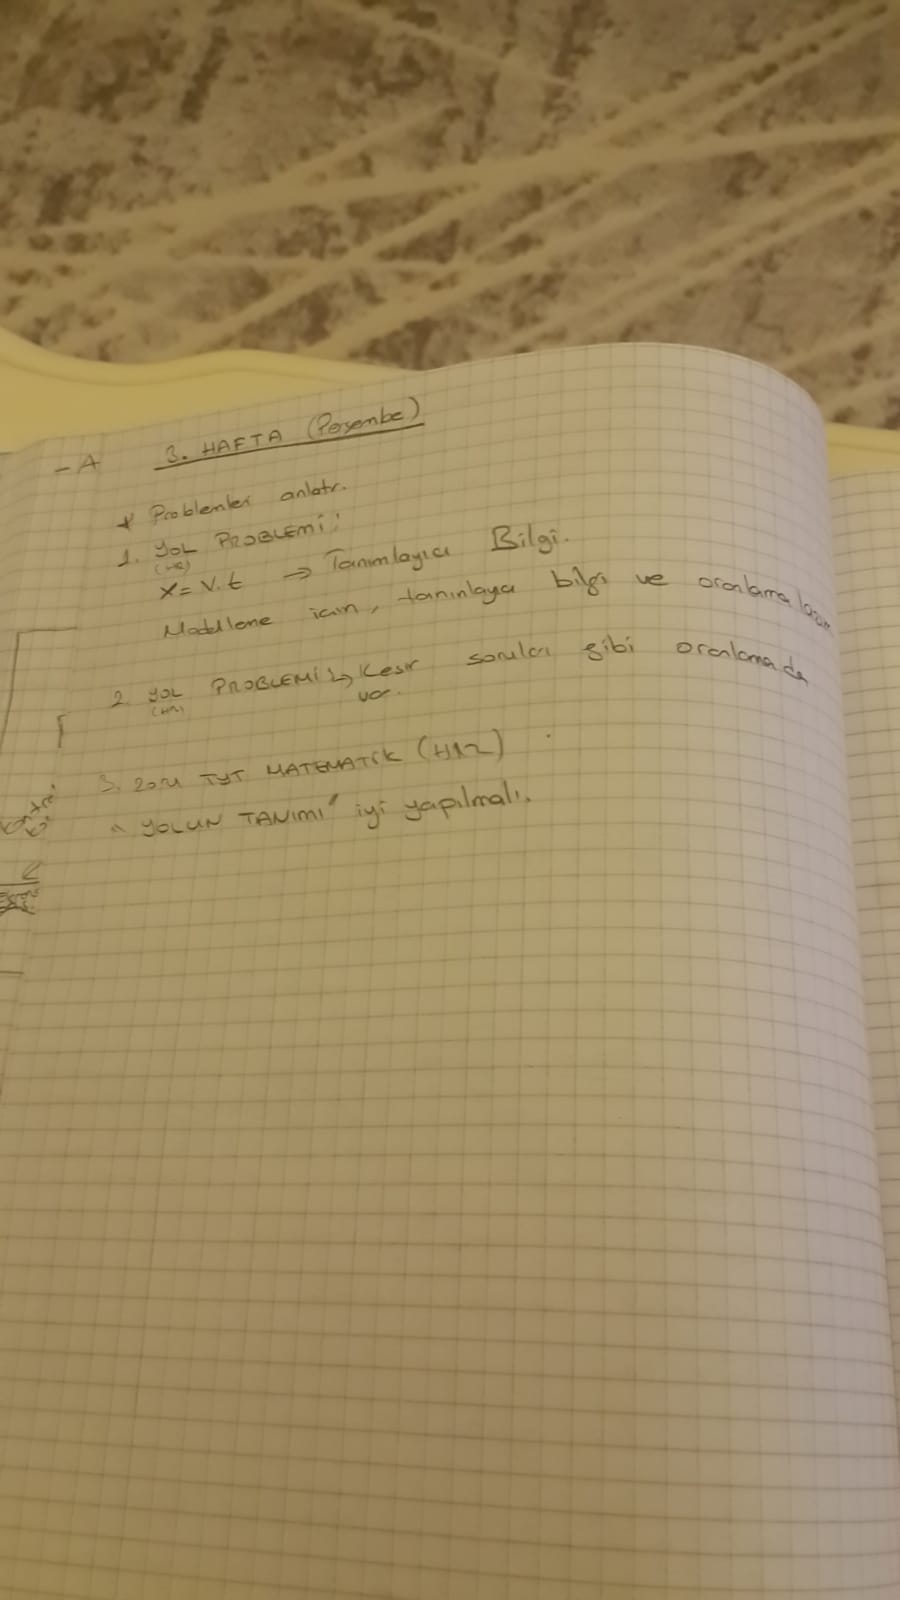 - A
3. HAFTA (Perşembe)
* Problemler anlatır.
1. YOL PROBLEMİ:
(HIZ)
x = V.t → Tanımlayıcı Bilgi.
Modelleme için, tanımlayıcı bilgi ve oranlama lazım
2. YOL PROBLEMİ ↳ Kesir soruları gibi oranlama da
(HIZ)
var.
3. TYT MATEMATİK (HIZ)
" YOLUN TANIMI" iyi yapılmalı.